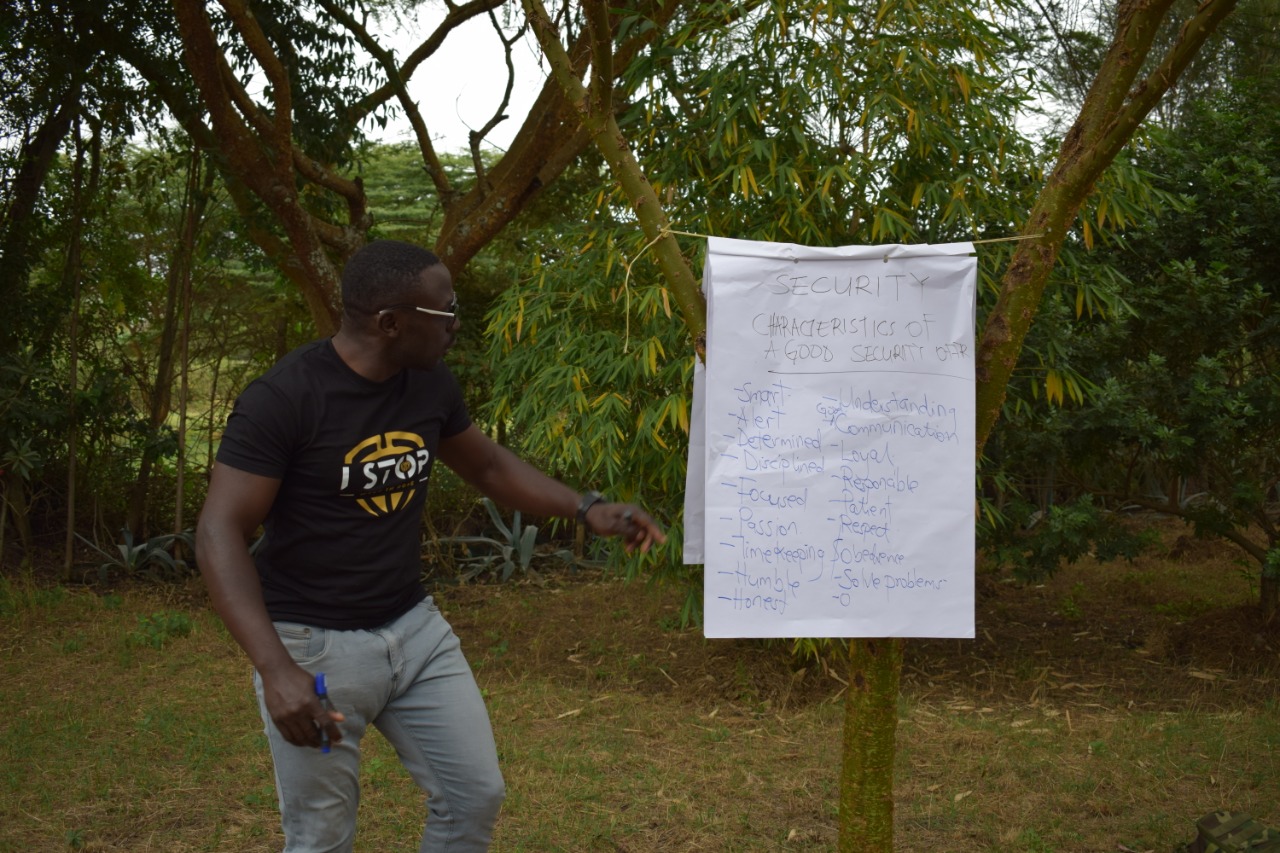 I STOP
SECURITY
CHARACTERISTICS OF
A GOOD SECURITY OFFR
-Smart
-Alert
-Determined
-Disciplined
-Focused
-Passion
-Timekeeping
-Humble
-Honest
-Understanding
Good Communication
-Loyal
-Responable
-Patient
-Respect
obedience
-Solve problems
-O